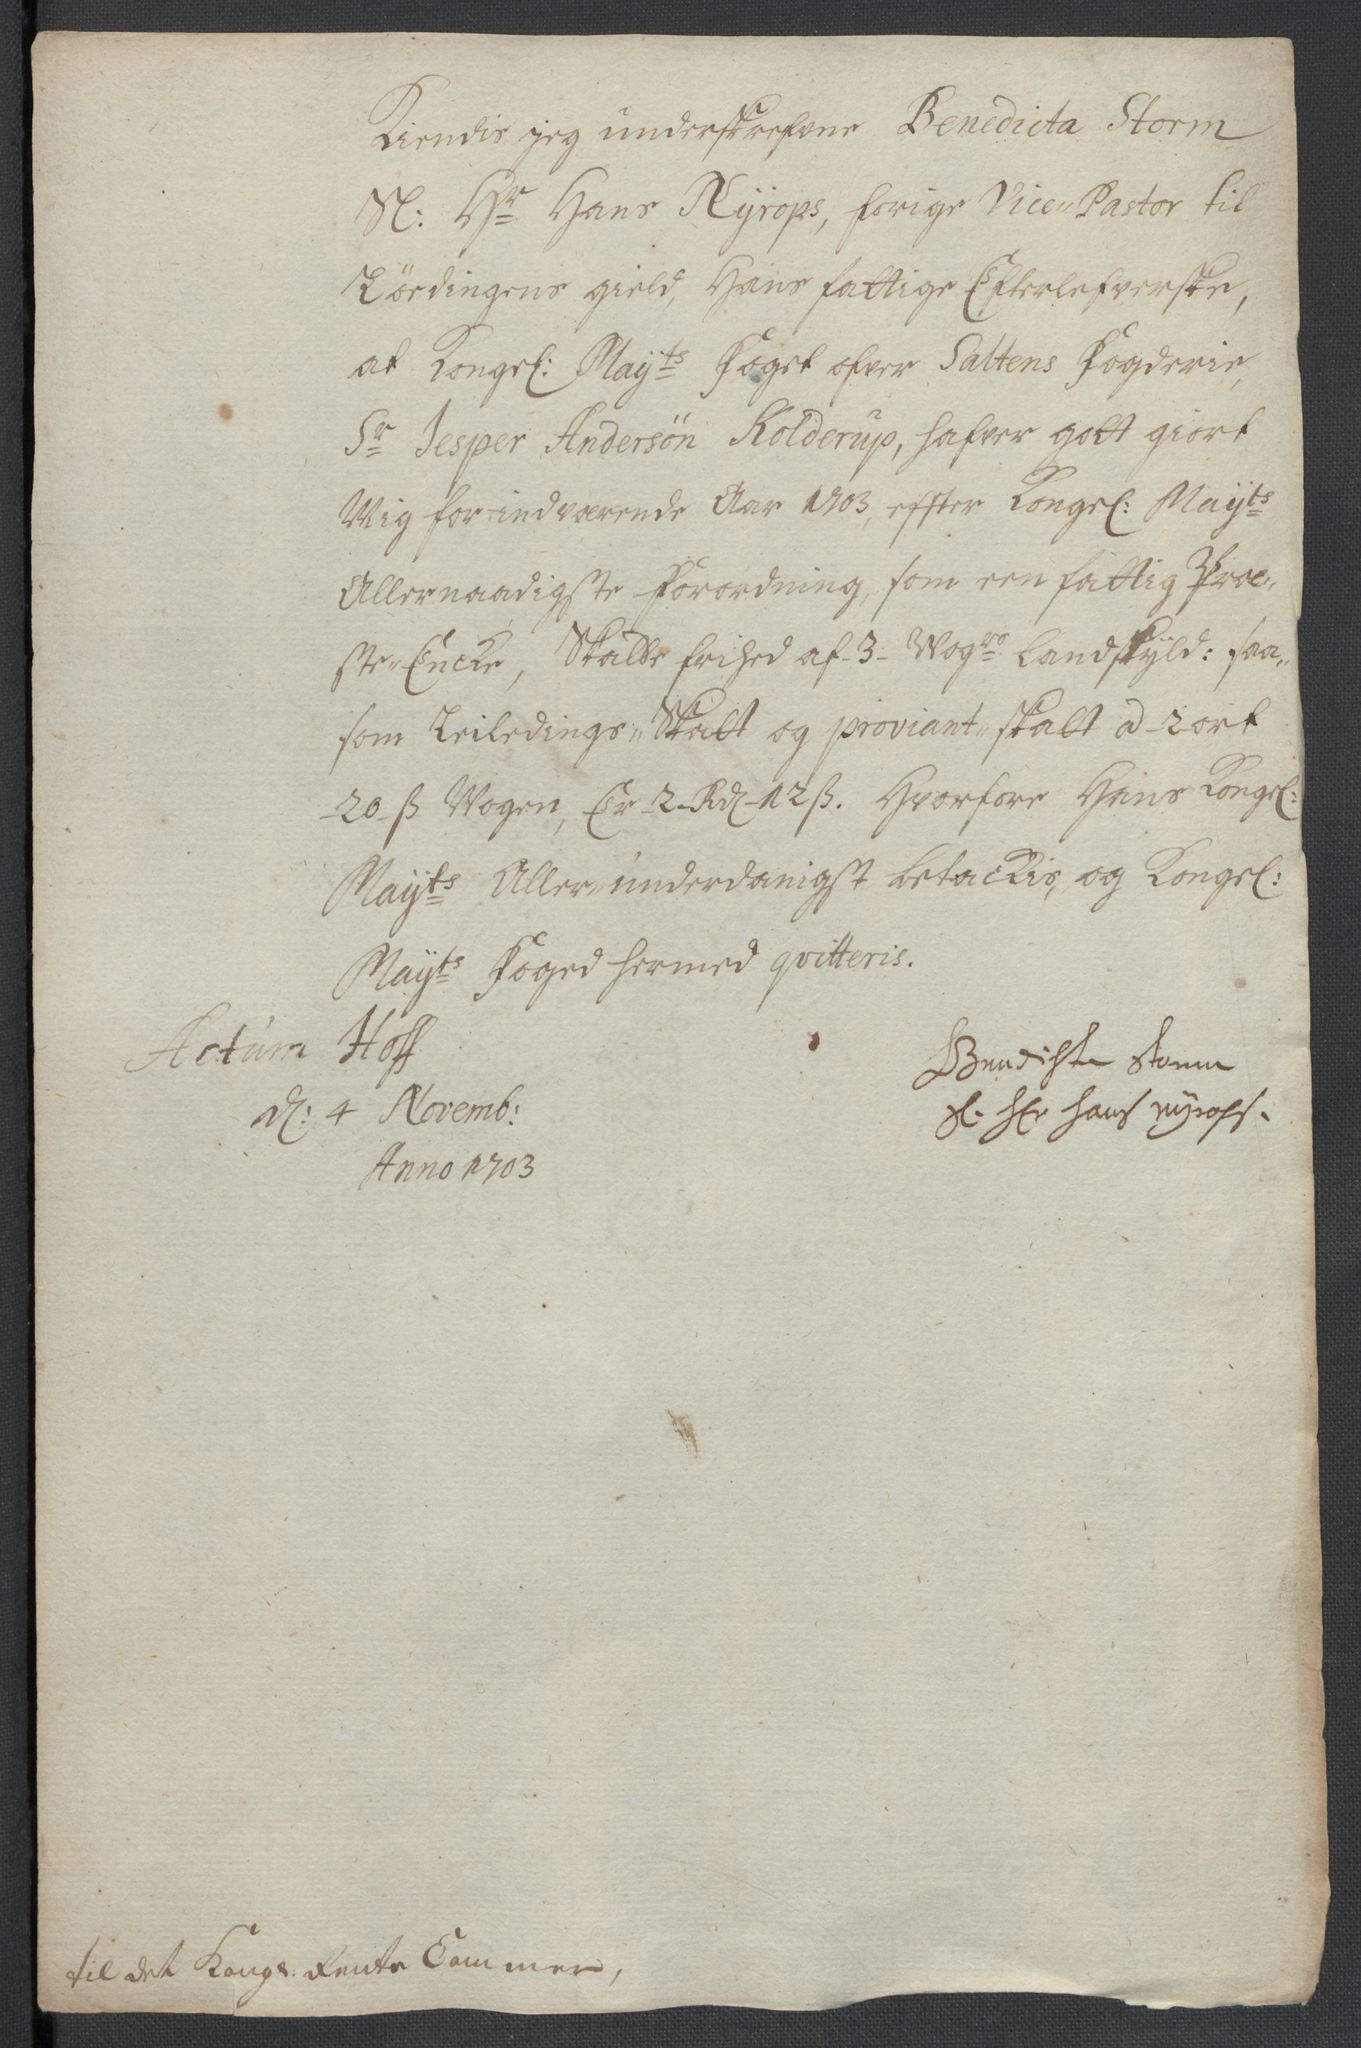 Kiendis jeg underskrefvne Benedicta Storm
Sl: Hr Hans Nyrops, forige Vice„Pastor til
Lödingens gield, Hans fattige Efterlefverske,
at Kongel: Mayts Foget ofver Saltens Fogderie,
Sr Jesper Andersön Kolderup, hafver gott giort
Mig for indværende Aar 1703, effter Kongel: Mayts
Allernaadigste Forordning, som een fattig Præ„
ste„Encke, Skatte frihed af -3- Wogr Landskyld: saa„
som Leiledings„Skatt og proviant„skatt a -2 ort
-20- ß Wogen, Er -2- Rd -12 ß. Hvorfore Hans Kongel:
Mayts Aller„underdanigst betackis, og Kongel:
Mayts Foged hermed qvitteris.
Actum Hoff
d: 4 Novemb:
Anno 1703
Bendichte Storm
Sl. her Hans nyrops.
til det Kongs: Rente Cammer,